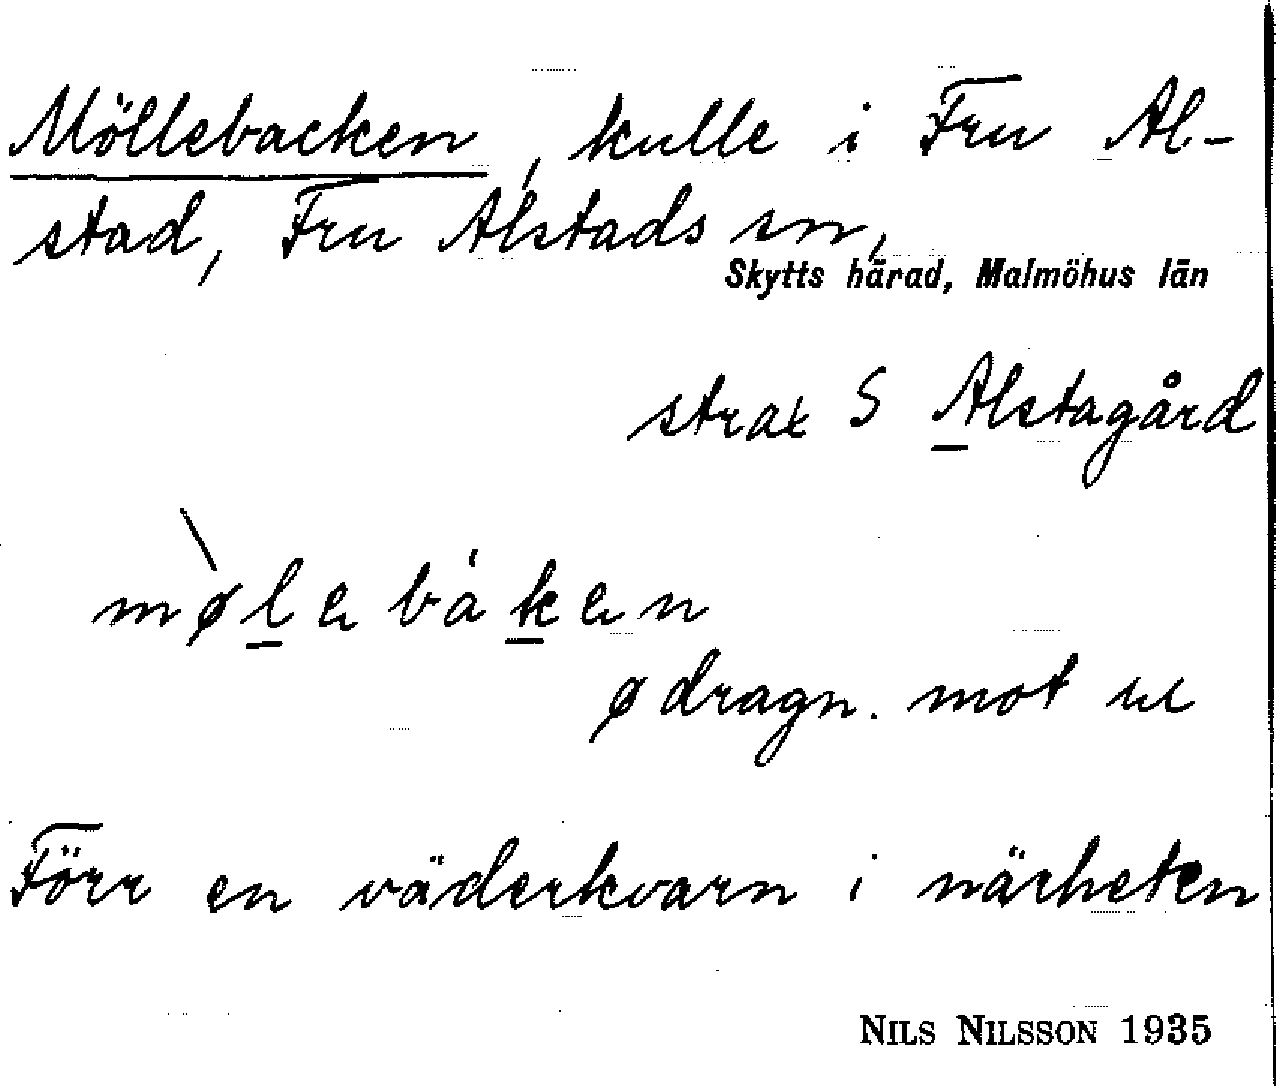 Möllebacken, kulle i Fru Al-
stad, Fru Alstads sn,
Skytts härad, Malmöhus län
strax S Alstagård
mølebáken
ø dragn. mot œ
Förr en väderkvarn i närheten
NILS NILSSON 1935